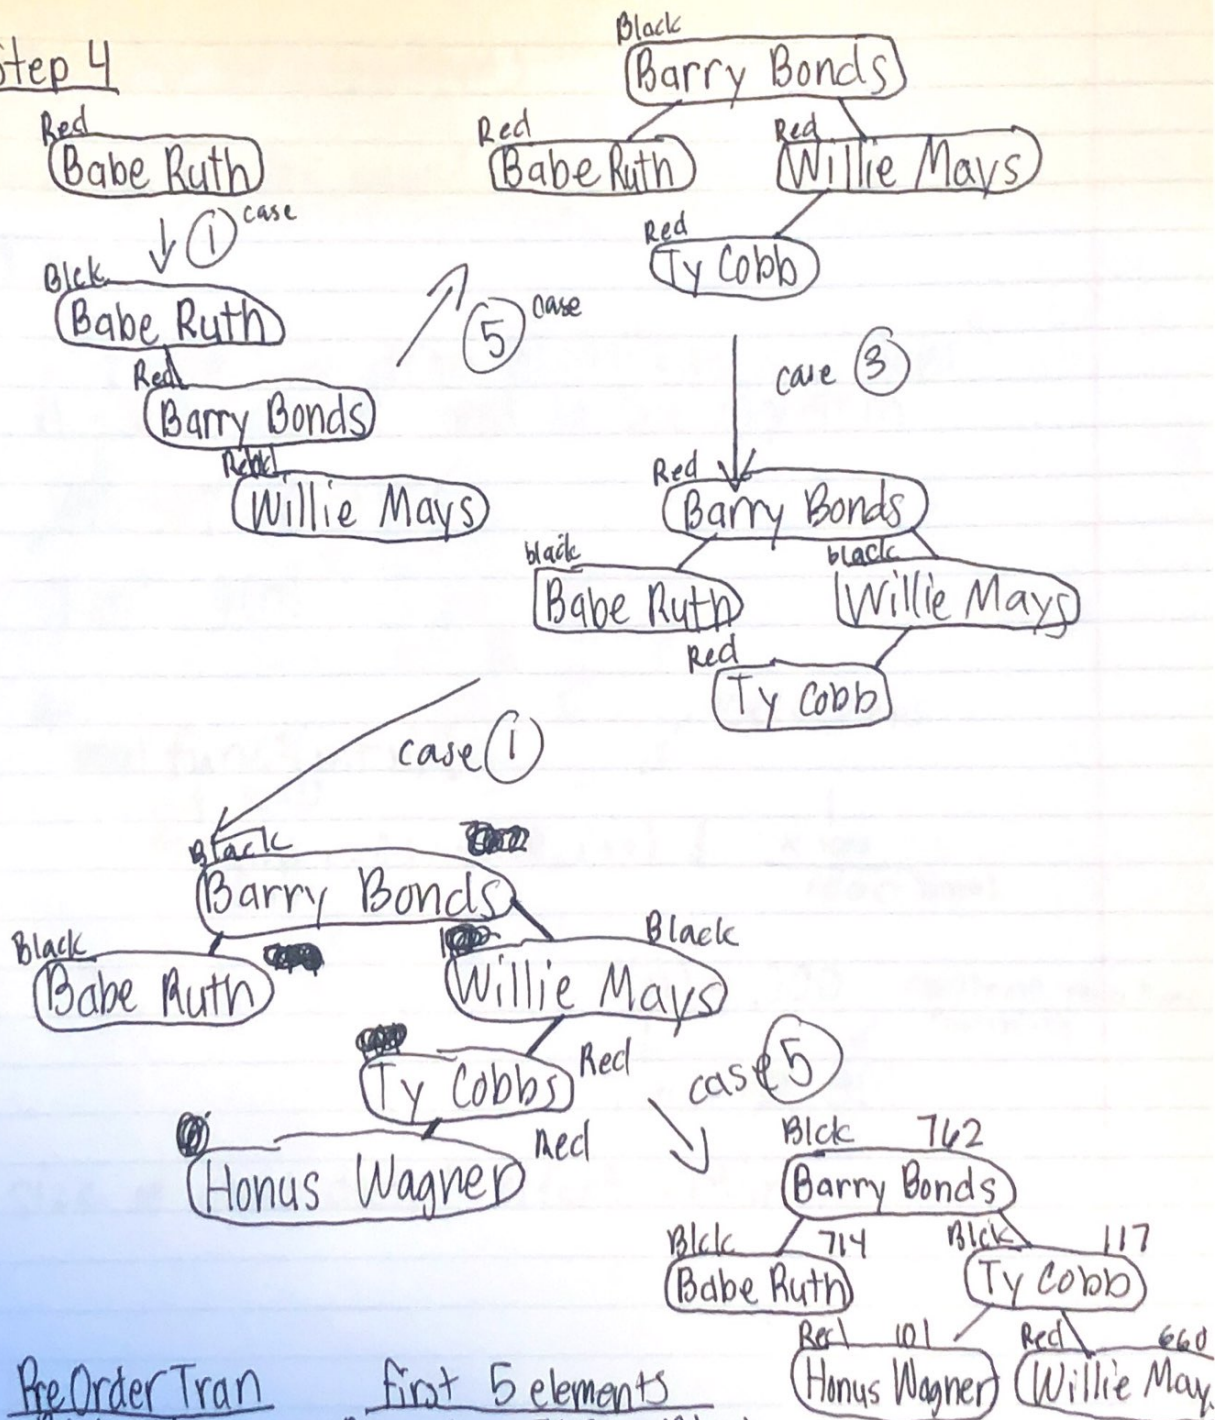 Step 4
Red
Babe Ruth
1 case
Blck
Babe Ruth
Red
Barry Bonds
Red
Willie Mays
5 case
Black
Barry Bonds
Red
Babe Ruth
Red
Willie Mays
Red
Ty Cobb
case 3
Red
Barry Bonds
black
Babe Ruth
black
Willie Mays
Red
Ty Cobb
case 1
Black
Barry Bonds
Black
Babe Ruth
Black
Willie Mays
Ty Cobbs
Red
Honus Wagner
Red
case 5
Blck 762
Barry Bonds
Blck 714
Babe Ruth
Blck 117
Ty Cobb
Red 101
Honus Wagner
Red 660
Willie May
PreOrder Tran First 5 elements